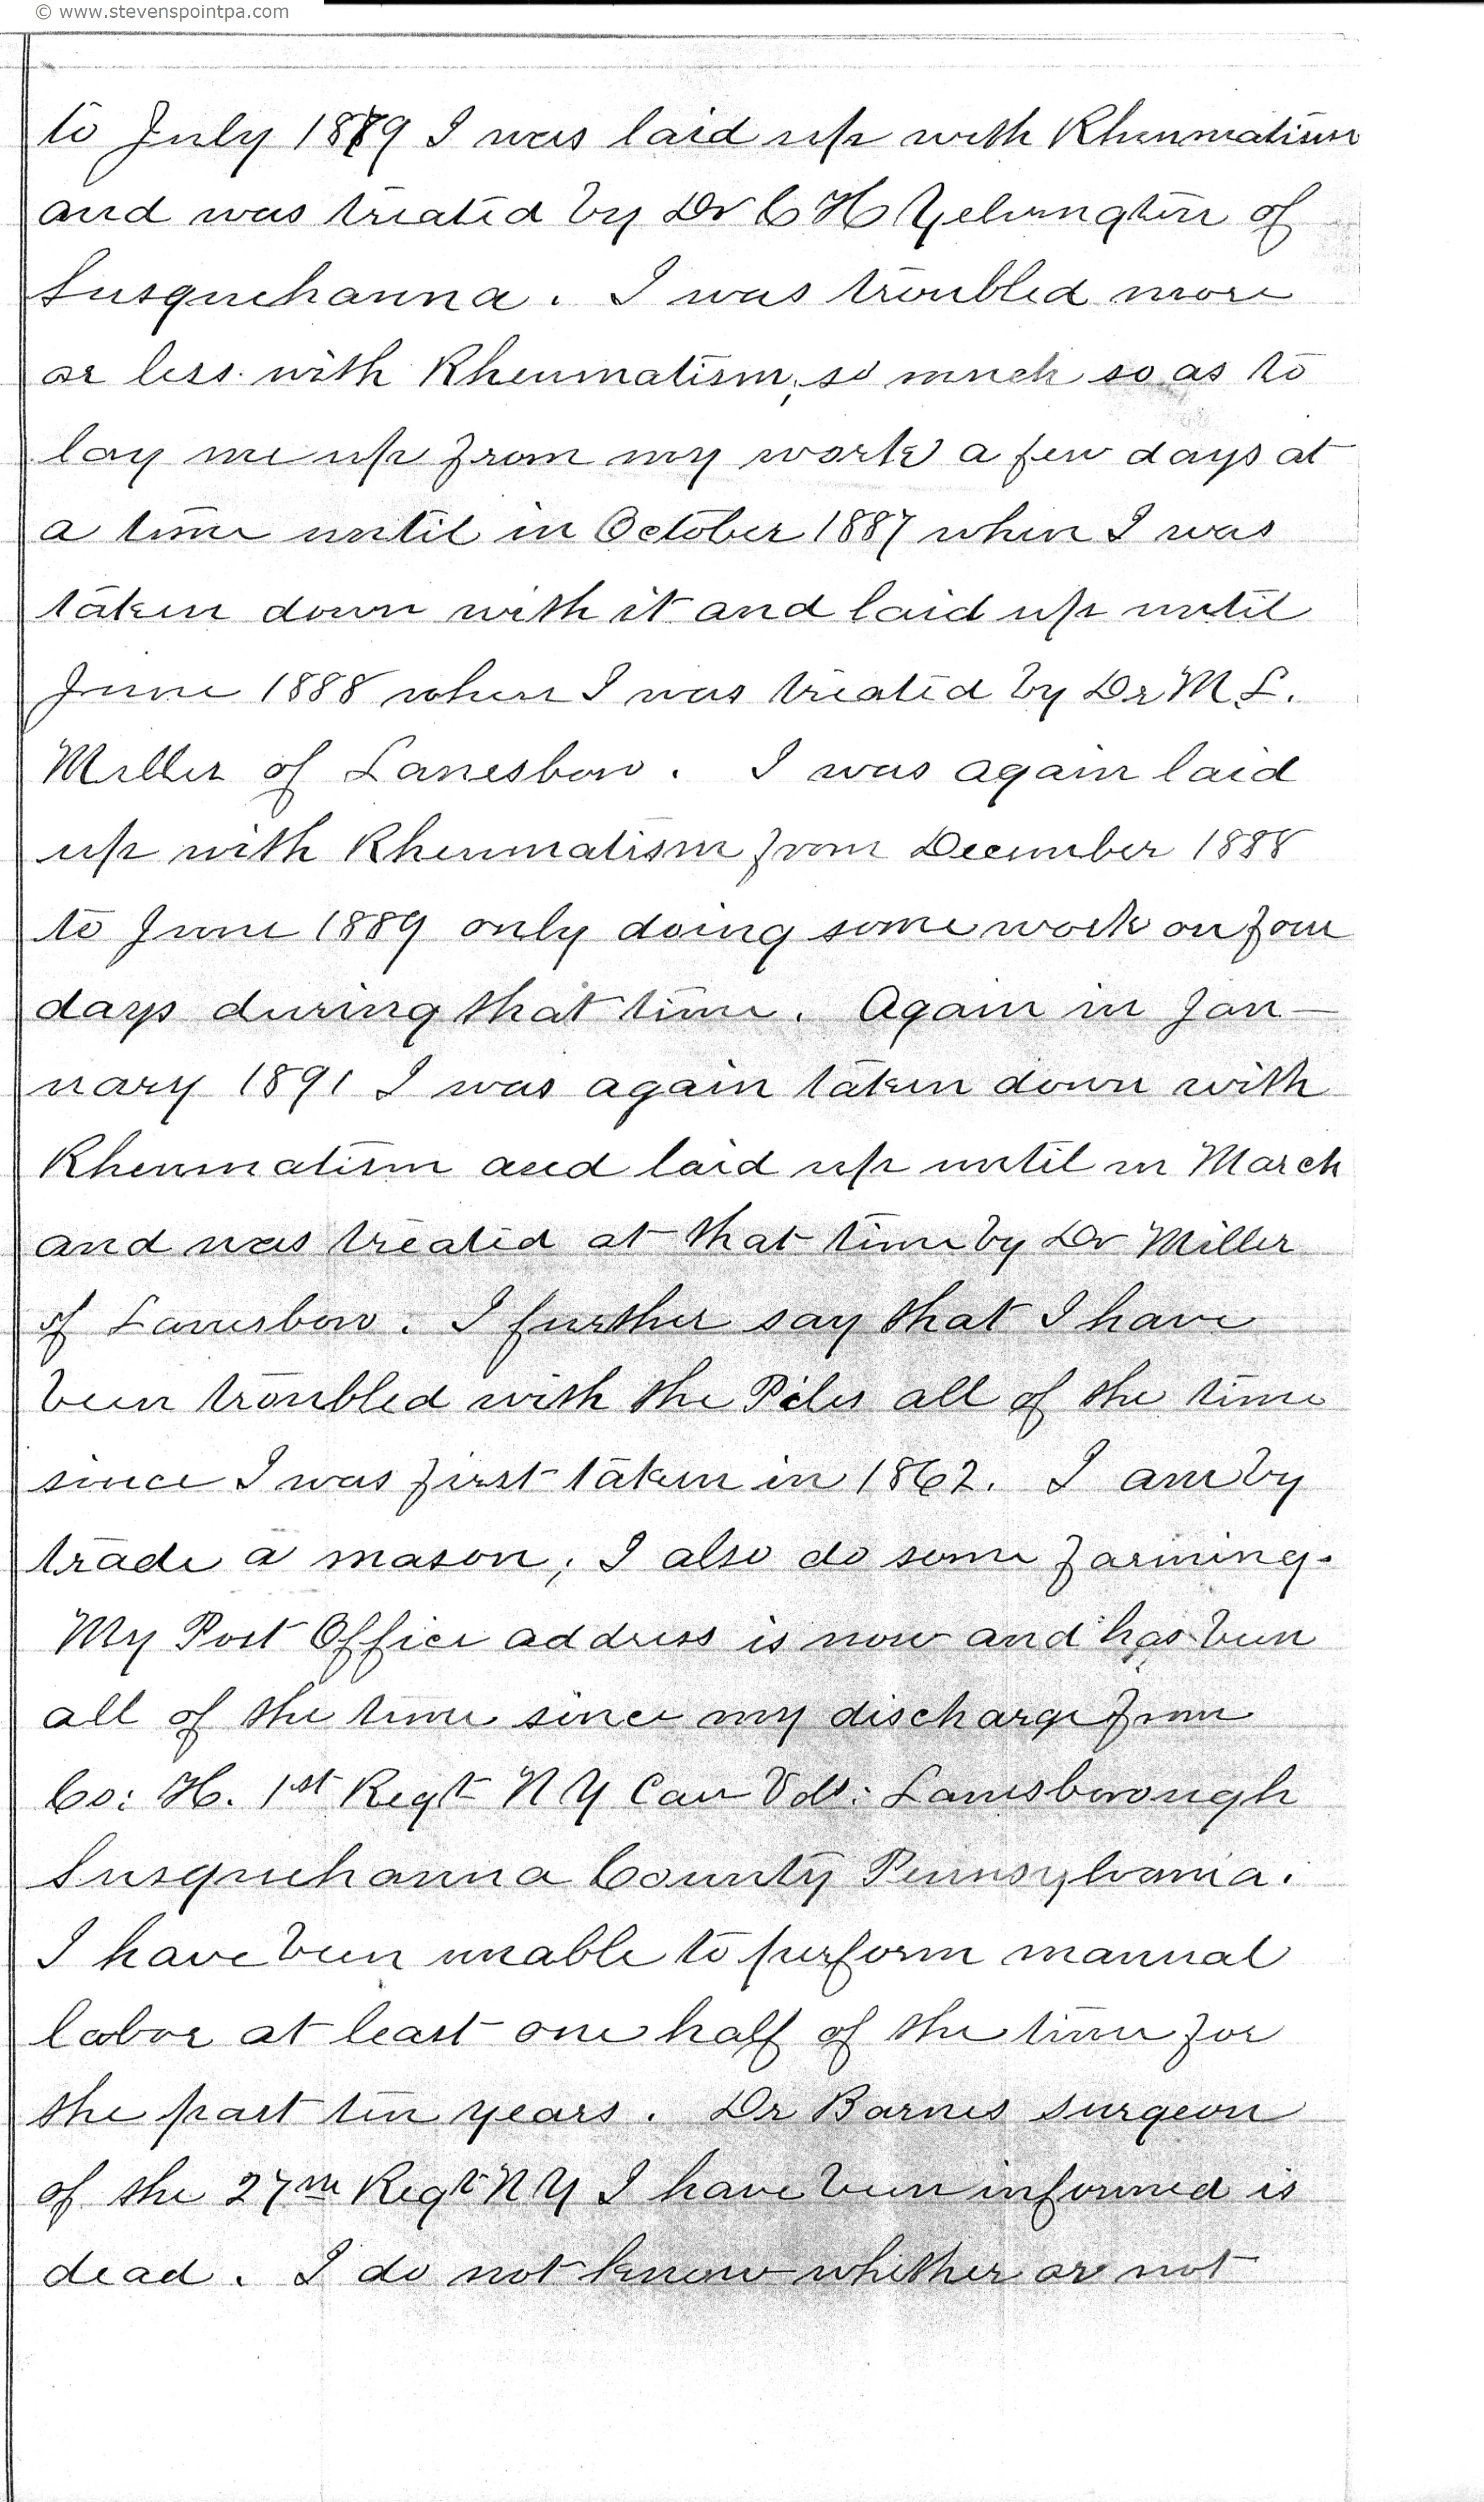 © www.stevenspointpa.com
to July 1879 I was laid up with Rheumatism
and was treated by Dr C H Yelvington of
Susquehanna. I was troubled more
or less with Rheumatism, so much so as to
lay me up from my work a few days at
a time until in October 1887 when I was
taken down with it and laid up until
June 1888 when I was treated by Dr M L.
Miller of Lanesboro. I was again laid
up with Rheumatism from December 1888
to June 1889 only doing some work on four
days during that time. Again in Jan-
uary 1891 I was again taken down with
Rheumatism and laid up until in March
and was treated at that time by Dr Miller
of Lanesboro. I further say that I have
been troubled with the Piles all of the time
since I was first taken in 1862. I am by
trade a mason, I also do some farming.
My Post Office address is now and has been
all of the time since my discharge from
Co: H. 1st Regt N Y Cav Vols: Lanesborough
Susquehanna County Pennsylvania.
I have been unable to perform manual
labor at least one half of the time for
the past ten years. Dr Barnes surgeon
of the 27th Regt N Y I have been informed is
dead. I do not know whether or not